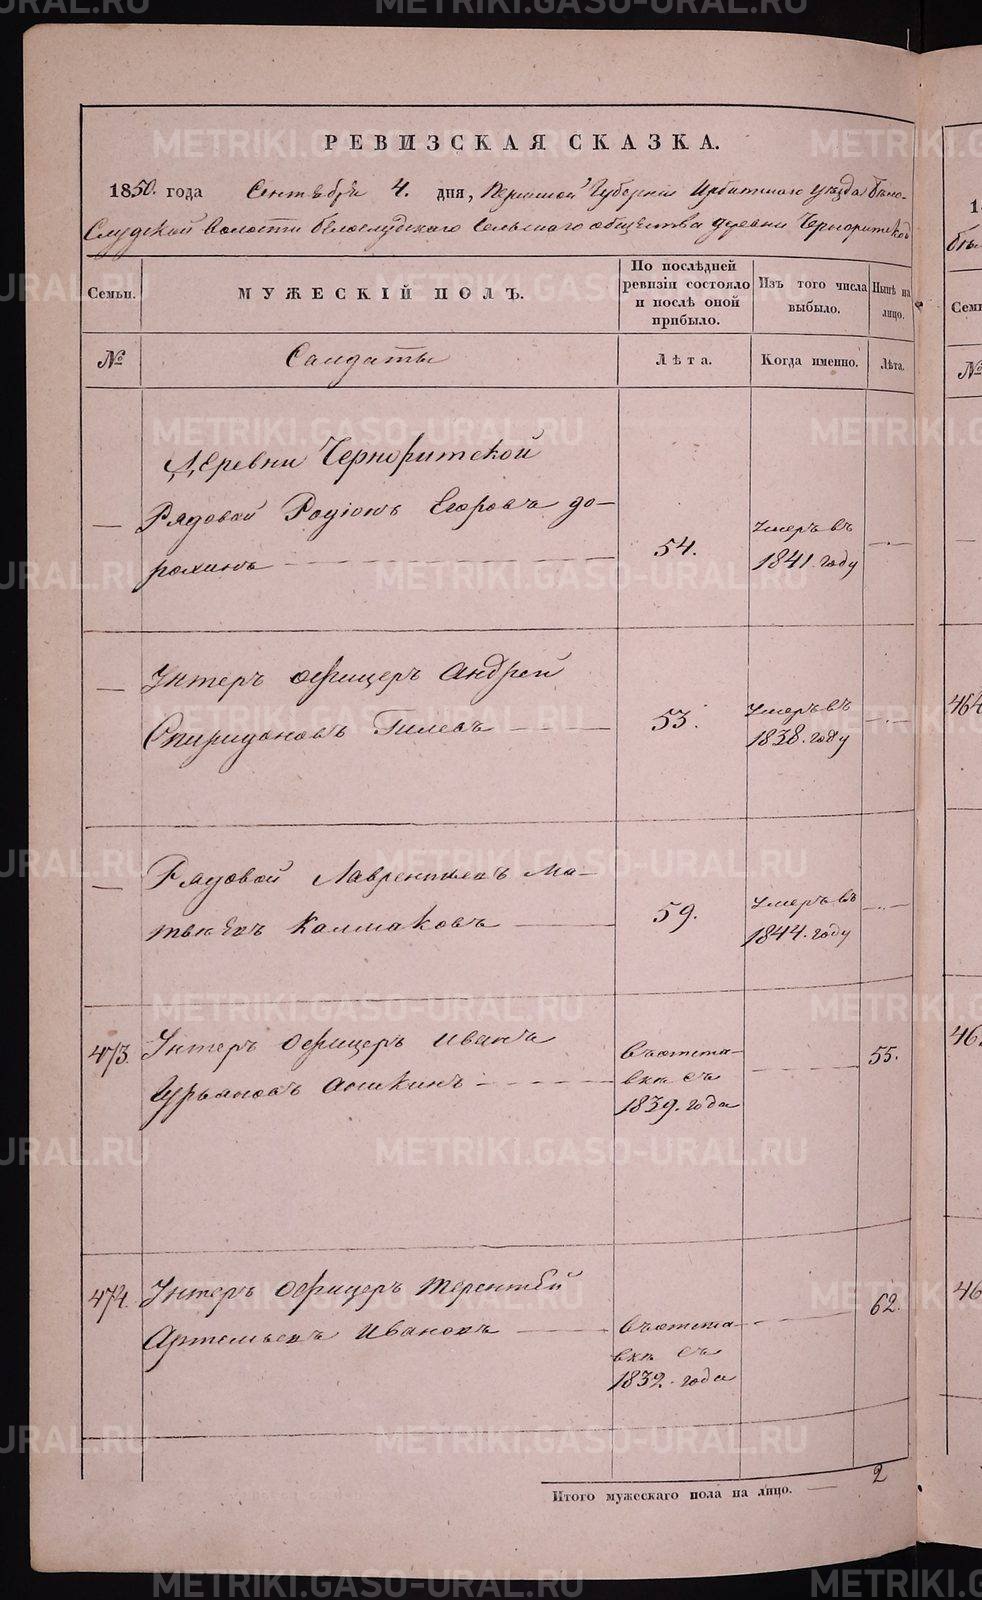 METRIKI.GASO-URAL.RU
РЕВИЗСКАЯ СКАЗКА.
1850. года Сентября 4. дня, Пермской Губернии Ирбитскаго Уезда Бело-
Слудской Волости Белослудскаго Сельскаго общества деревни Черноритской
Семьи. МУЖЕСКІЙ ПОЛЪ. По послѣдней ревизіи состояло и послѣ оной прибыло. Изъ того числа выбыло. Нынѣ на лицо.
№ Салдаты Лѣта. Когда именно. Лѣта.
Деревни Черноритской
— Рядовой Родіонъ Егоровъ до-
рохинъ — 54. Умеръ въ 1841. году —
— Унтеръ офицеръ Андрей
Спиридоновъ Гилевъ — 53. Умеръ въ 1838. году —
— Рядовой Лаврентий Ма-
твѣевъ Калмаковъ — 59. умеръ въ 1844. году —
473. Унтеръ офицеръ Иванъ
Гурьяновъ Аникинъ — Въ отста-
вкѣ съ
1839. года — 55.
474. Унтеръ офицеръ Терентей
Артемьевъ Ивановъ — въ отста-
вкѣ съ
1832. года — 62.
Итого мужескаго пола на лицо. — 2